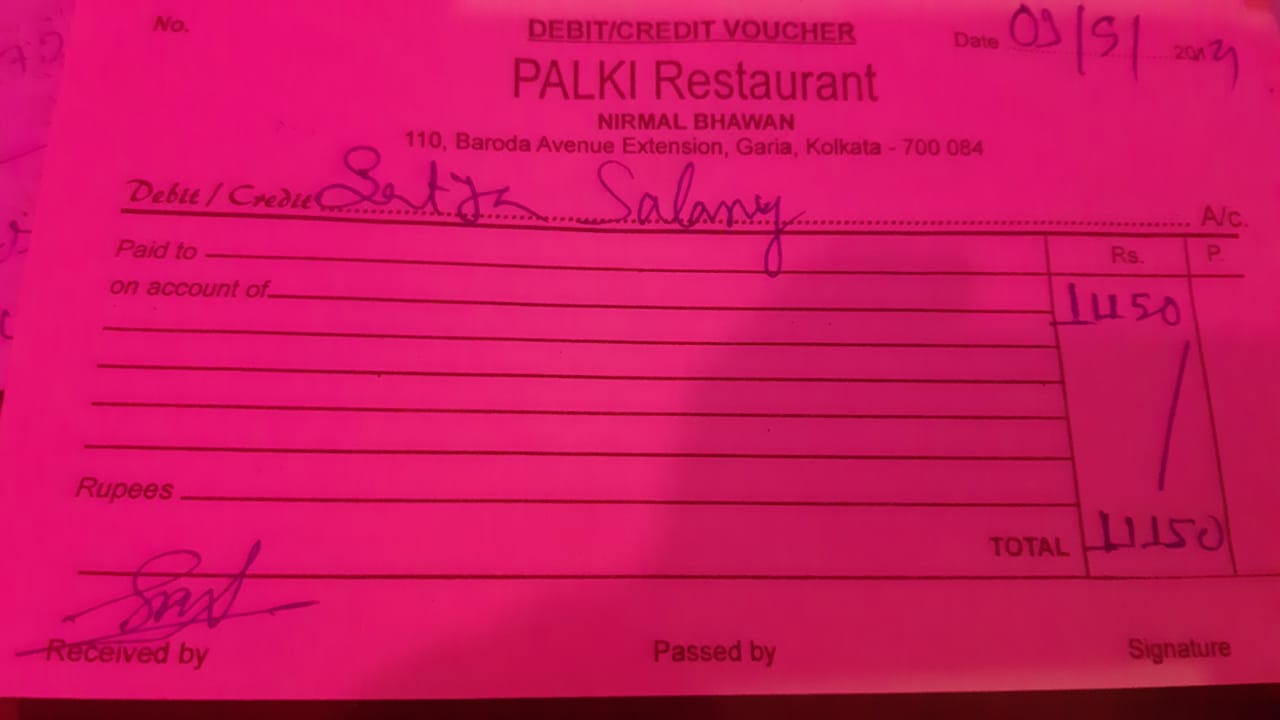 No.
DEBIT/CREDIT VOUCHER
Date 09/5/
PALKI Restaurant
NIRMAL BHAWAN
110, Baroda Avenue Extension, Garia, Kolkata - 700 084
Debit / Credit Salany A/c.
Paid to Rs. P.
on account of 1450
Rupees
TOTAL
Received by Passed by Signature